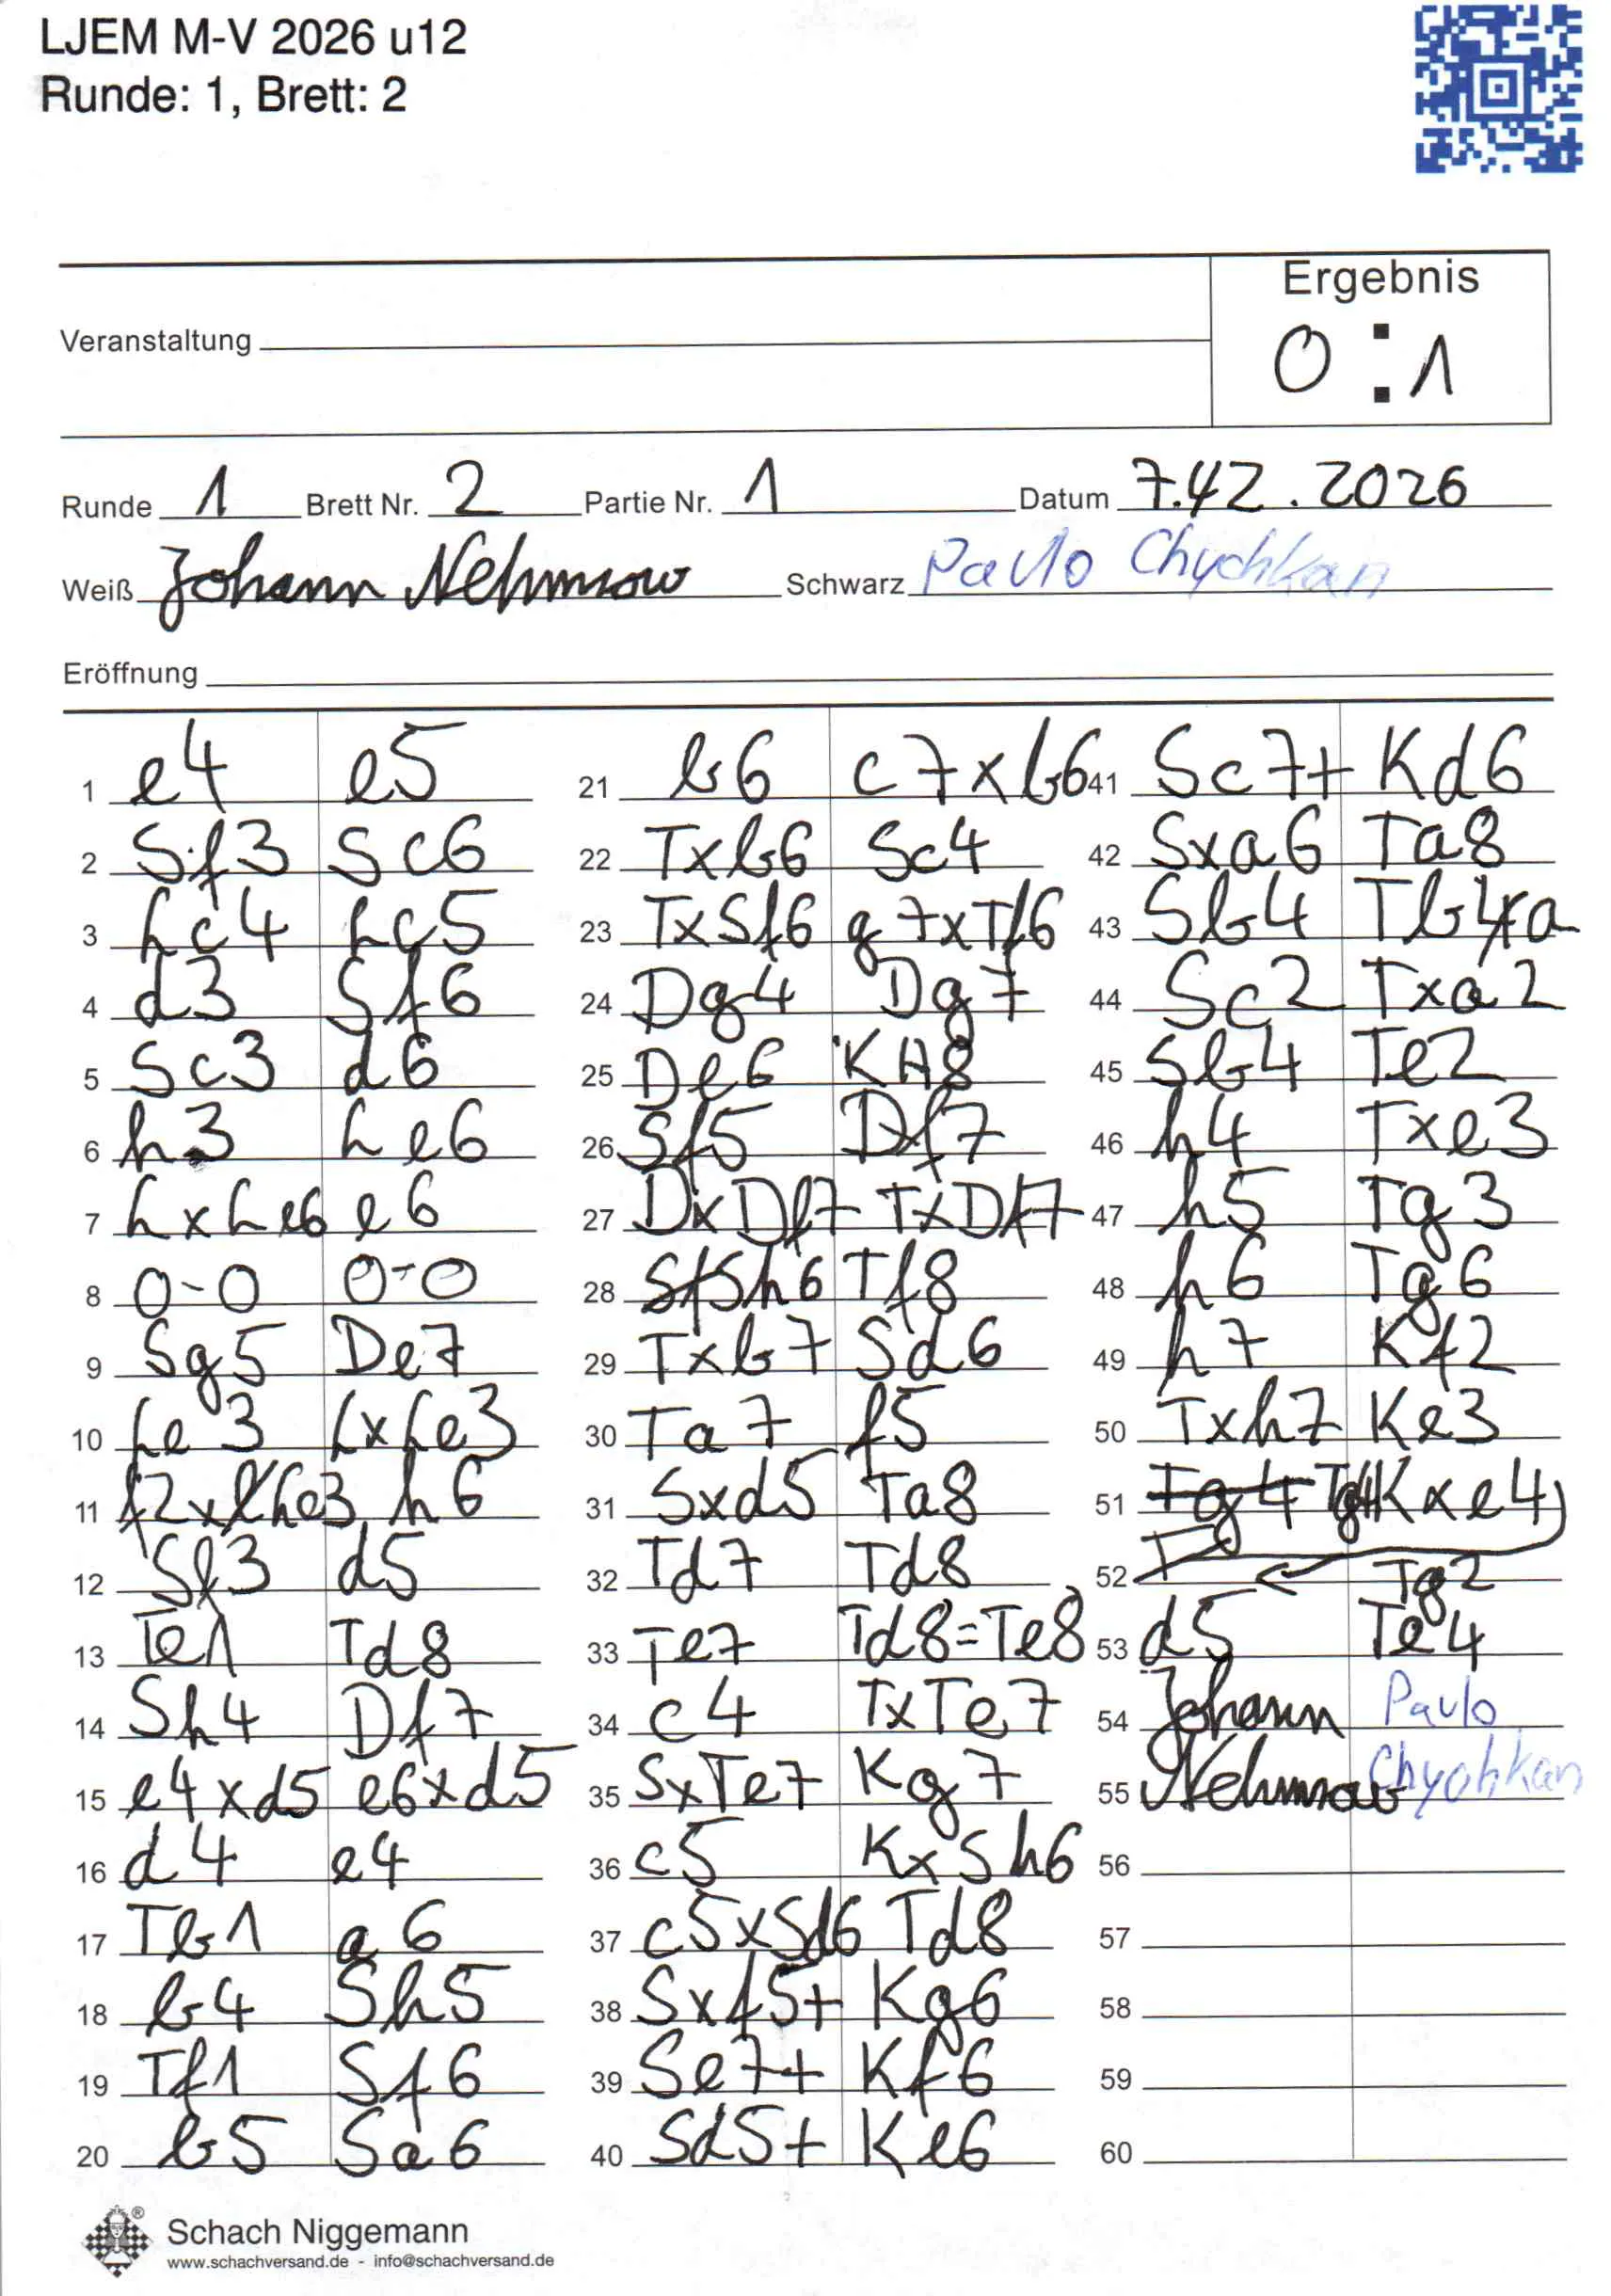 LJEM M-V 2026 u12
Runde: 1, Brett: 2
Ergebnis
0 : 1
Veranstaltung
Runde 1 Brett Nr. 2 Partie Nr. 1 Datum 7.42.2026
Weiß Johann Nehmsow Schwarz Pavlo Chychkan
Eröffnung
1 e4 e5
2 Sf3 Sc6
3 Lc4 Lc5
4 d3 Sf6
5 Sc3 d6
6 h3 Le6
7 LxLe6 e6
8 0-0 0-0
9 Sg5 De7
10 Le3 LxLe3
11 f2xLe3 h6
12 Sf3 d5
13 Te1 Td8
14 Sh4 Df7
15 e4xd5 e6xd5
16 d4 e4
17 Tb1 a6
18 b4 Sh5
19 Tf1 Sf6
20 b5 Sa6
21 b6 c7xb6
22 Txb6 Sc4
23 TxSf6 g7xTf6
24 Dg4 Dg7
25 De6 KH8
26 Sf5 Df7
27 DxDf7 TxDf7
28 Sf5h6 Tf8
29 Txb7 Sd6
30 Ta7 f5
31 Sxd5 Ta8
32 Td7 Td8
33 Te7 Td8=Te8
34 c4 TxTe7
35 SxTe7 Kg7
36 c5 KxSh6
37 c5xSd6 Td8
38 Sxf5+ Kg6
39 Se7+ Kf6
40 Sd5+ Ke6
41 Sc7+ Kd6
42 Sxa6 Ta8
43 Sb4 Tb4xa
44 Sc2 Txa2
45 Sb4 Te2
46 h4 Txe3
47 h5 Tg3
48 h6 Tg6
49 h7 Kf2
50 Txh7 Ke3
51 Tg4 Tg4 Kxe4
52 Tg2
53 d5 Te4
54 Johann Pavlo
55 Nehmsow Chychkan
56
57
58
59
60
Schach Niggemann
www.schachversand.de - info@schachversand.de